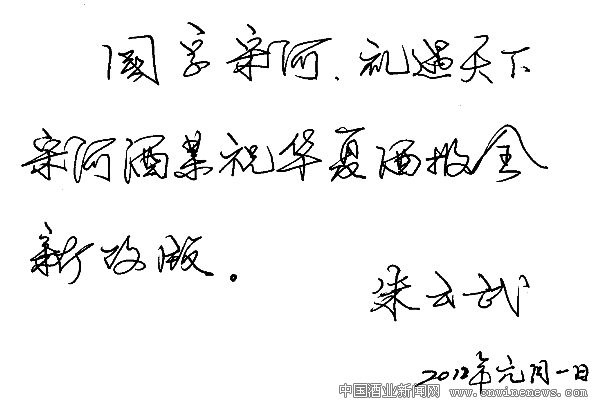 国字宋河、礼遇天下
宋河酒業祝华夏酒报全
新改版。
朱云武
2012年元月一日
中国酒业新闻网
www.cnwinenews.com